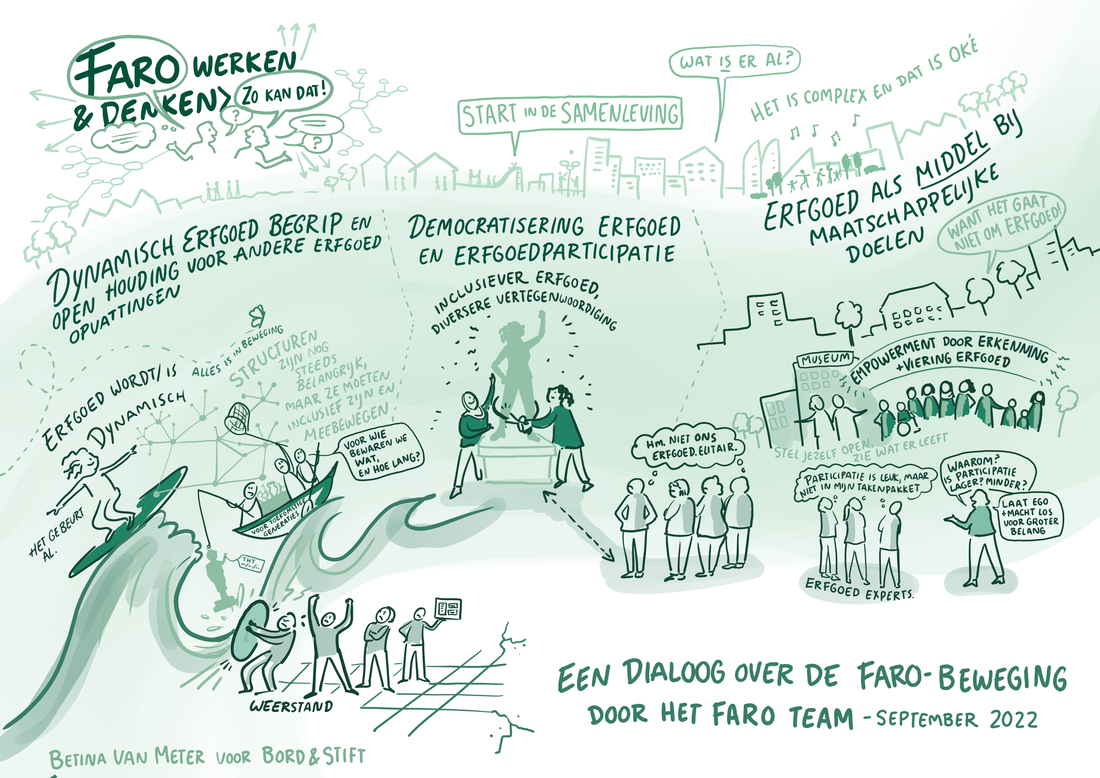 FARO WERKEN
& DENKEN>
ZO KAN DAT!
?
?
START IN DE SAMENLEVING
WAT IS ER AL?
HET IS COMPLEX EN DAT IS OKÉ
DYNAMISCH ERFGOED BEGRIP EN
OPEN HOUDING VOOR ANDERE ERFGOED
OPVATTINGEN
ALLES IS IN BEWEGING
ERFGOED WORDT/IS
DYNAMISCH
STRUCTUREN
ZIJN NOG
STEEDS
BELANGRIJK,
MAAR ZE MOETEN
INCLUSIEF ZIJN EN
MEEBEWEGEN.
HET GEBEURT
AL.
VOOR WIE
BEWAREN WE
WAT,
EN HOE LANG?
VOOR TOEKOMSTIGE
GENERATIES
WEERSTAND
DEMOCRATISERING ERFGOED
EN ERFGOEDPARTICIPATIE
INCLUSIEVER ERFGOED,
DIVERSERE VERTEGENWOORDIGING
HM. NIET ONS
ERFGOED. ELITAIR.
ERFGOED ALS MIDDEL BIJ
MAATSCHAPPELIJKE
DOELEN
WANT HET GAAT
NIET OM ERFGOED!
MUSEUM
EMPOWERMENT DOOR ERKENNING
+VIERING ERFGOED
STEL JEZELF OPEN,
ZIE WAT ER LEEFT
PARTICIPATIE IS LEUK, MAAR
NIET IN MIJN TAKENPAKKET
ERFGOED EXPERTS.
WAAROM?
IS PARTICIPATIE
LAGER? MINDER?
LAAT EGO
+MACHT LOS
VOOR GROTER
BELANG
EEN DIALOOG OVER DE FARO-BEWEGING
DOOR HET FARO TEAM - SEPTEMBER 2022
BETINA VAN METER VOOR BORD & STIFT